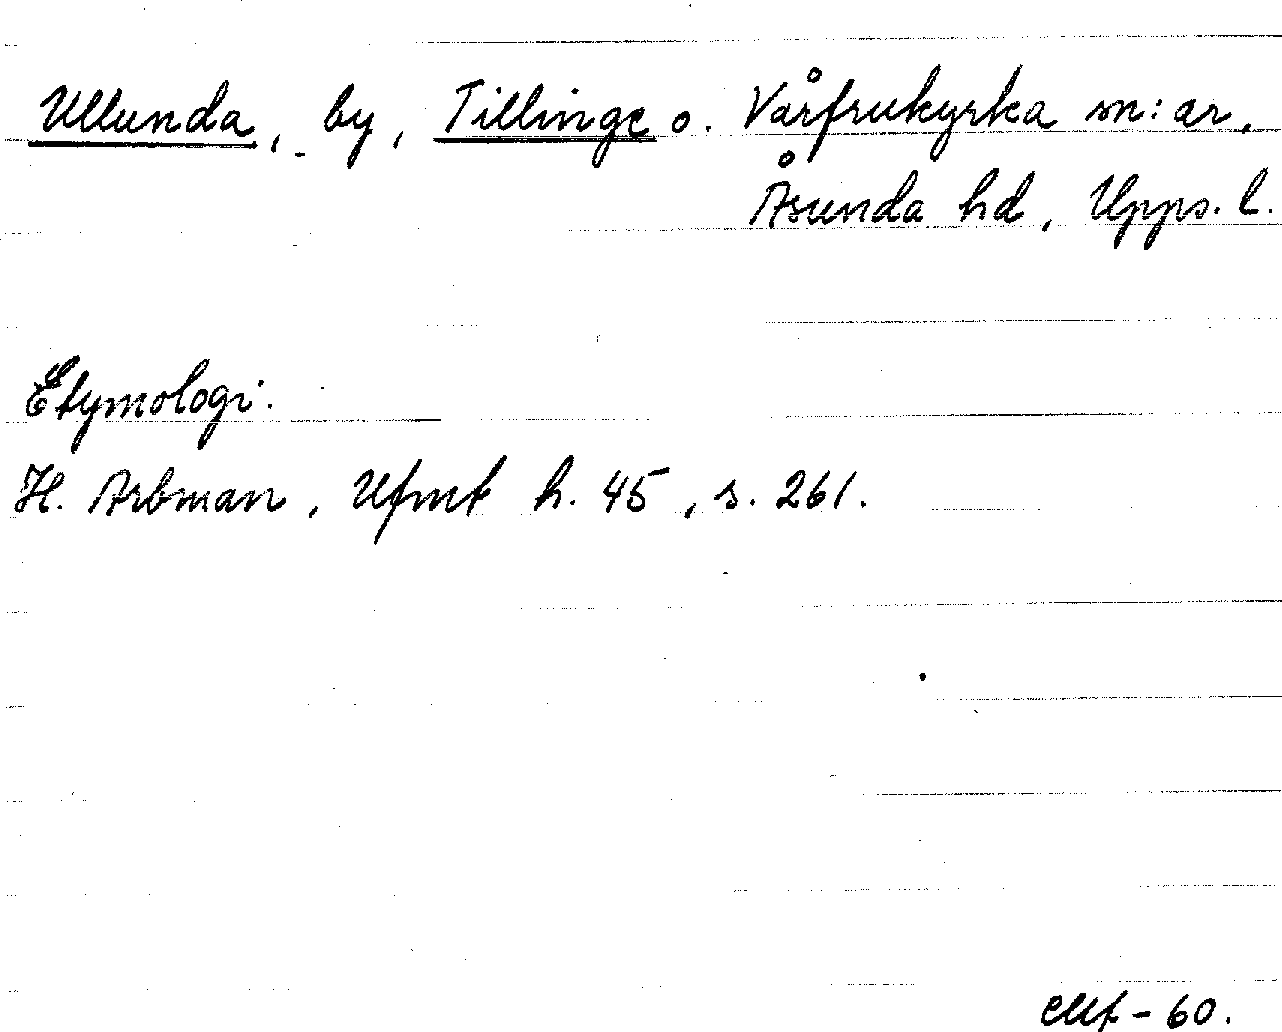 Ullunda, by, Tillinge o. Vårfrukyrka sn:ar,
Åsunda hd, Upps. l.
Etymologi.
H. Arbman, Ufmt h. 45, s. 261.
-60.